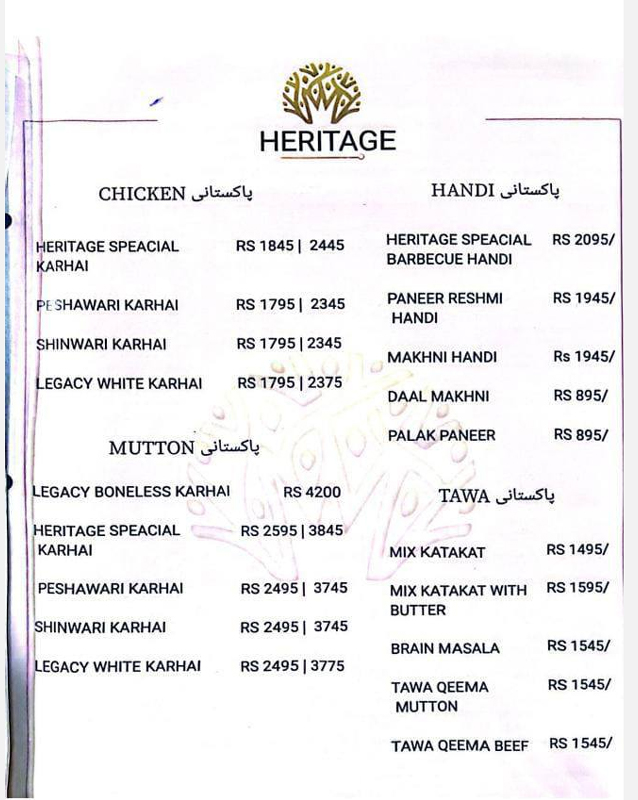 HERITAGE
CHICKEN پاکستانی
HERITAGE SPEACIAL RS 1845 | 2445
KARHAI
PESHAWARI KARHAI RS 1795 | 2345
SHINWARI KARHAI RS 1795 | 2345
LEGACY WHITE KARHAI RS 1795 | 2375
MUTTON پاکستانی
LEGACY BONELESS KARHAI RS 4200
HERITAGE SPEACIAL RS 2595 | 3845
KARHAI
PESHAWARI KARHAI RS 2495 | 3745
SHINWARI KARHAI RS 2495 | 3745
LEGACY WHITE KARHAI RS 2495 | 3775
HANDI پاکستانی
HERITAGE SPEACIAL RS 2095/
BARBECUE HANDI
PANEER RESHMI RS 1945/
HANDI
MAKHNI HANDI Rs 1945/
DAAL MAKHNI RS 895/
PALAK PANEER RS 895/
TAWA پاکستانی
MIX KATAKAT RS 1495/
MIX KATAKAT WITH RS 1595/
BUTTER
BRAIN MASALA RS 1545/
TAWA QEEMA RS 1545/
MUTTON
TAWA QEEMA BEEF RS 1545/